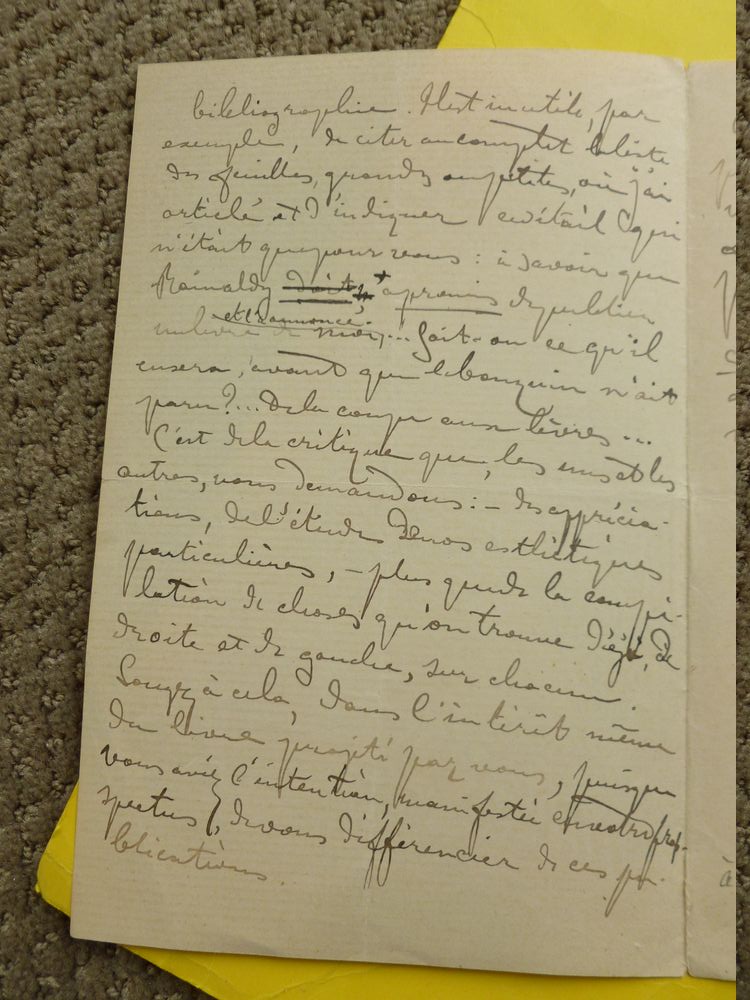 bibliographie. Il est inutile, par
exemple, de citer au complet la liste
des feuilles, grandes ou petites, où j'ai
articlé et d'indiquer en détail ce qui
n'était que pour vous : à savoir que
Rainaldy doit, a promis de publier
et l'annonce.
un livre de moi,... Sait-on ce qu'il
en sera, avant que le bouquin n'ait
paru ?... De la coupe aux lèvres...
C'est de la critique que, les uns et les
autres, nous demandons : – des apprécia-
tions, de l'étude de nos esthétiques
particulières, – plus que de la compi-
lation de choses qu'on trouve déjà, de
droite et de gauche, sur chacun.
Songez à cela, dans l'intérêt même
du livre projeté par vous, puisque
vous aviez l'intention, manifestée en votre pros-
pectus, de vous différencier de ces pu-
blications.
à